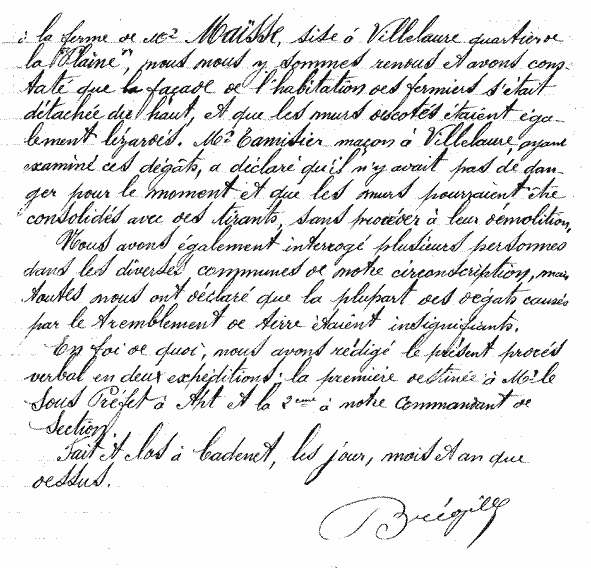 à la ferme de Mr Maïsse, sise à Villelaure quartier de
la "Plaine", nous nous y sommes rendus et avons cons
taté que la façade de l'habitation des fermiers s'était
détachée du haut, et que les murs de cotés étaient éga-
lement lézardés. Mr Tamisier maçon à Villelaure, ayant
examiné ces dégâts, a déclaré qu'il n'y avait pas de dan-
ger pour le moment et que les murs pourraient être
consolidés avec des tirants, sans procéder à leur démolition,
Nous avons également interrogé plusieurs personnes
dans les diverses communes de notre circonscription, mais
toutes nous ont déclaré que la plupart des dégâts causés
par le tremblement de terre étaient insignifiants.
En foi de quoi, nous avons rédigé le présent procès
verbal en deux expéditions; la première destinée à Mr le
Sous Préfet à Apt et la 2eme à notre Commandant de
Section.
Fait et clos à Cadenet, les jour, mois et an que
dessus.